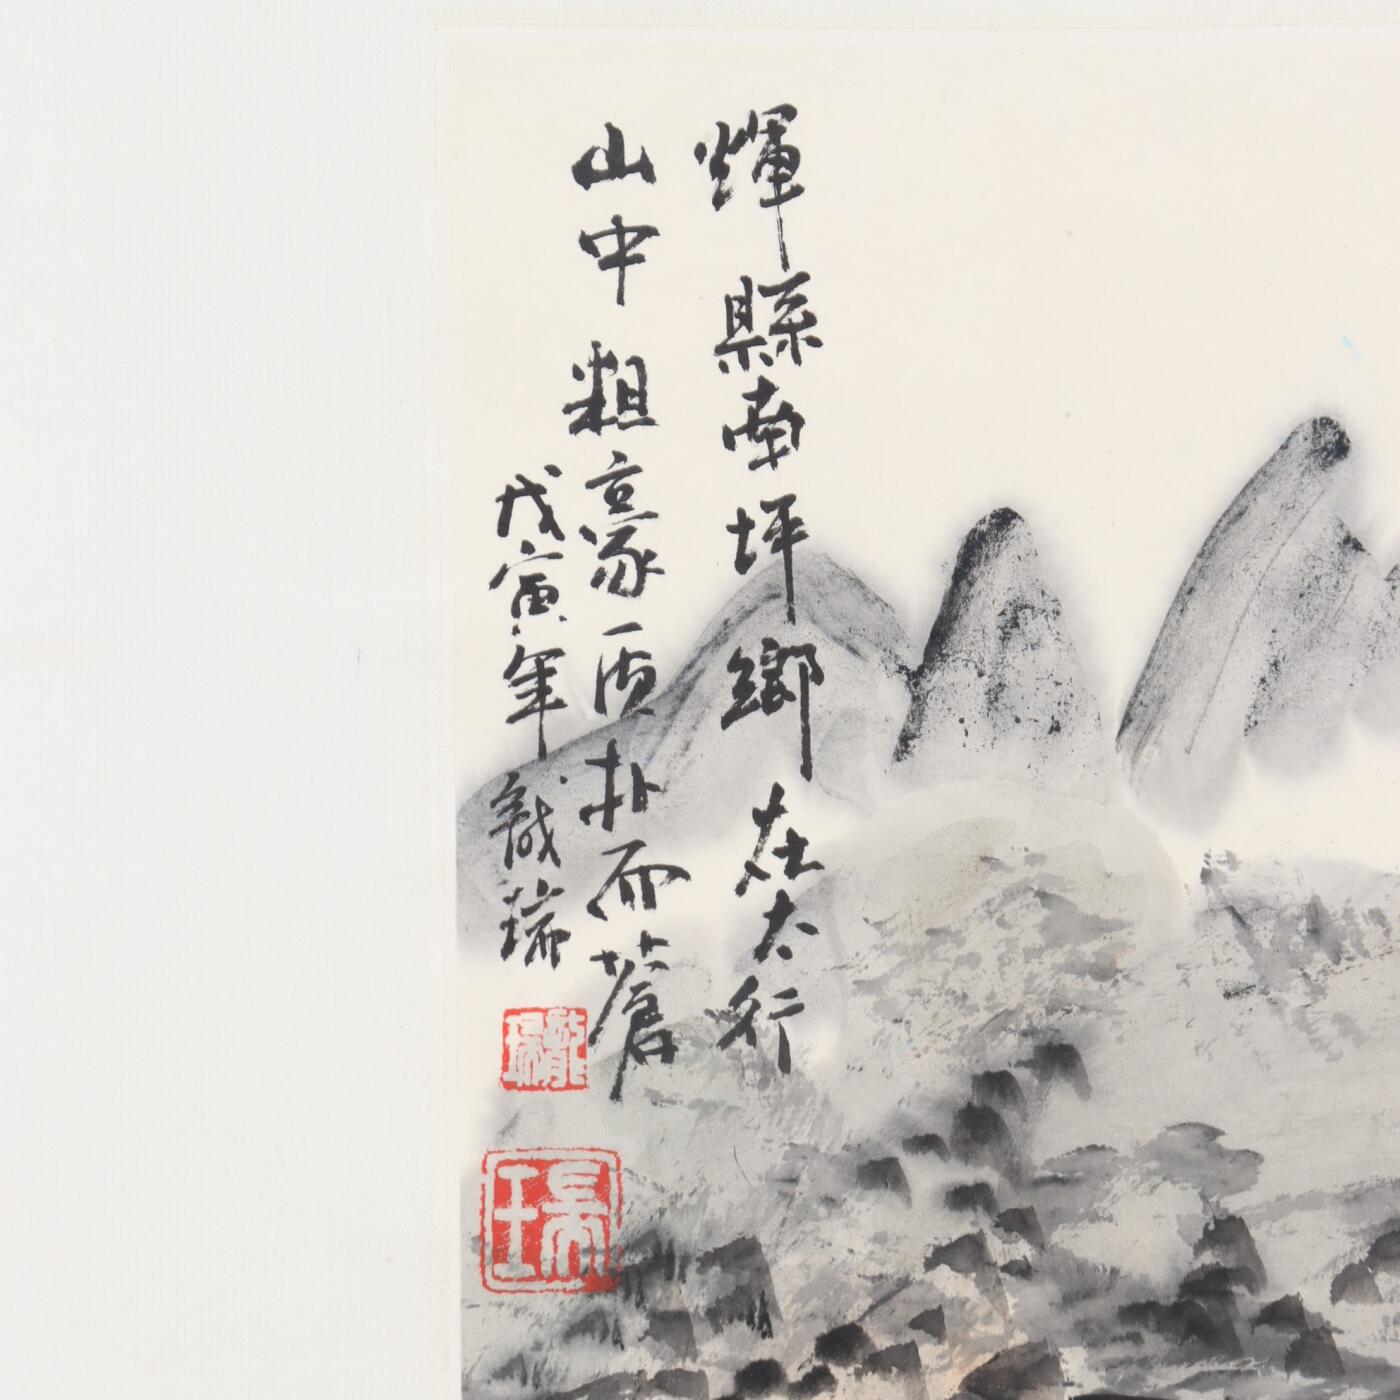 輝縣南坪鄉在太行
山中粗豪质朴而蒼
戊寅年龍瑞
龍瑞